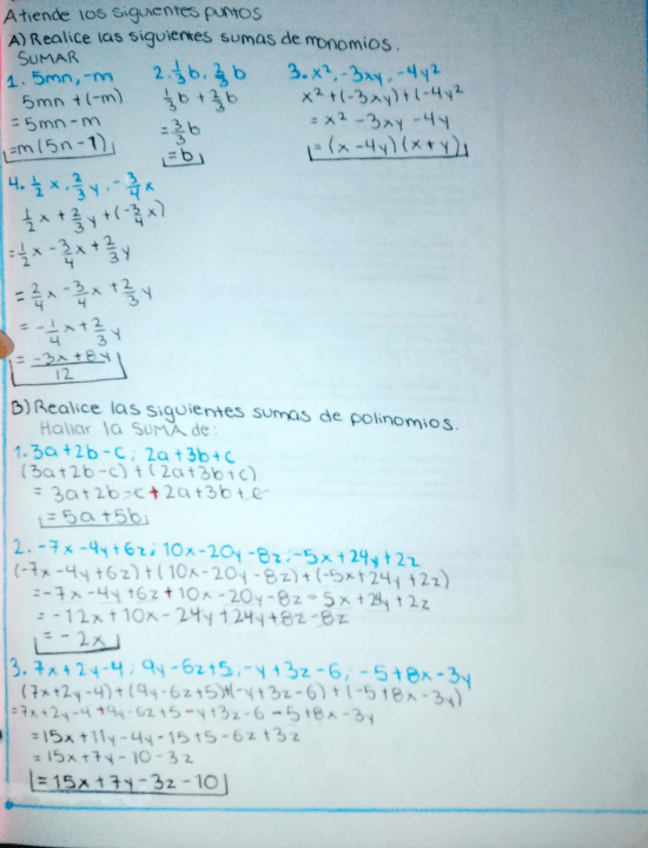 Atiende los siguientes puntos
A) Realice las siguientes sumas de monomios.
SUMAR
1. 5mn, -m
5mn + (-m)
= 5mn - m
= m(5n - 1)
2. 1/3 b, 2/3 b
1/3 b + 2/3 b
= 3/3 b
= b
3. x², -3xy, -4y²
x² + (-3xy) + (-4y²
= x² - 3xy - 4y
= (x - 4y)(x + y)
4. 1/2 x, 2/3 y, - 3/4 x
1/2 x + 2/3 y + (- 3/4 x)
= 1/2 x - 3/4 x + 2/3 y
= 2/4 x - 3/4 x + 2/3 y
= - 1/4 x + 2/3 y
= -3x + 8y / 12
B) Realice las siguientes sumas de polinomios.
Hallar la SUMA de:
1. 3a + 2b - c; 2a + 3b + c
(3a + 2b - c) + (2a + 3b + c)
= 3a + 2b - c + 2a + 3b + c
= 5a + 5b
2. -7x - 4y + 6z; 10x - 20y - 8z; -5x + 24y + 2z
(-7x - 4y + 6z) + (10x - 20y - 8z) + (-5x + 24y + 2z)
= -7x - 4y + 6z + 10x - 20y - 8z - 5x + 24y + 2z
= -12x + 10x - 24y + 24y + 8z - 8z
= - 2x
3. 7x + 2y - 4; 9y - 6z + 5; -y + 3z - 6; -5 + 8x - 3y
(7x + 2y - 4) + (9y - 6z + 5) + (-y + 3z - 6) + (-5 + 8x - 3y)
= 7x + 2y - 4 + 9y - 6z + 5 - y + 3z - 6 - 5 + 8x - 3y
= 15x + 11y - 4y - 15 + 5 - 6z + 3z
= 15x + 7y - 10 - 3z
= 15x + 7y - 3z - 10